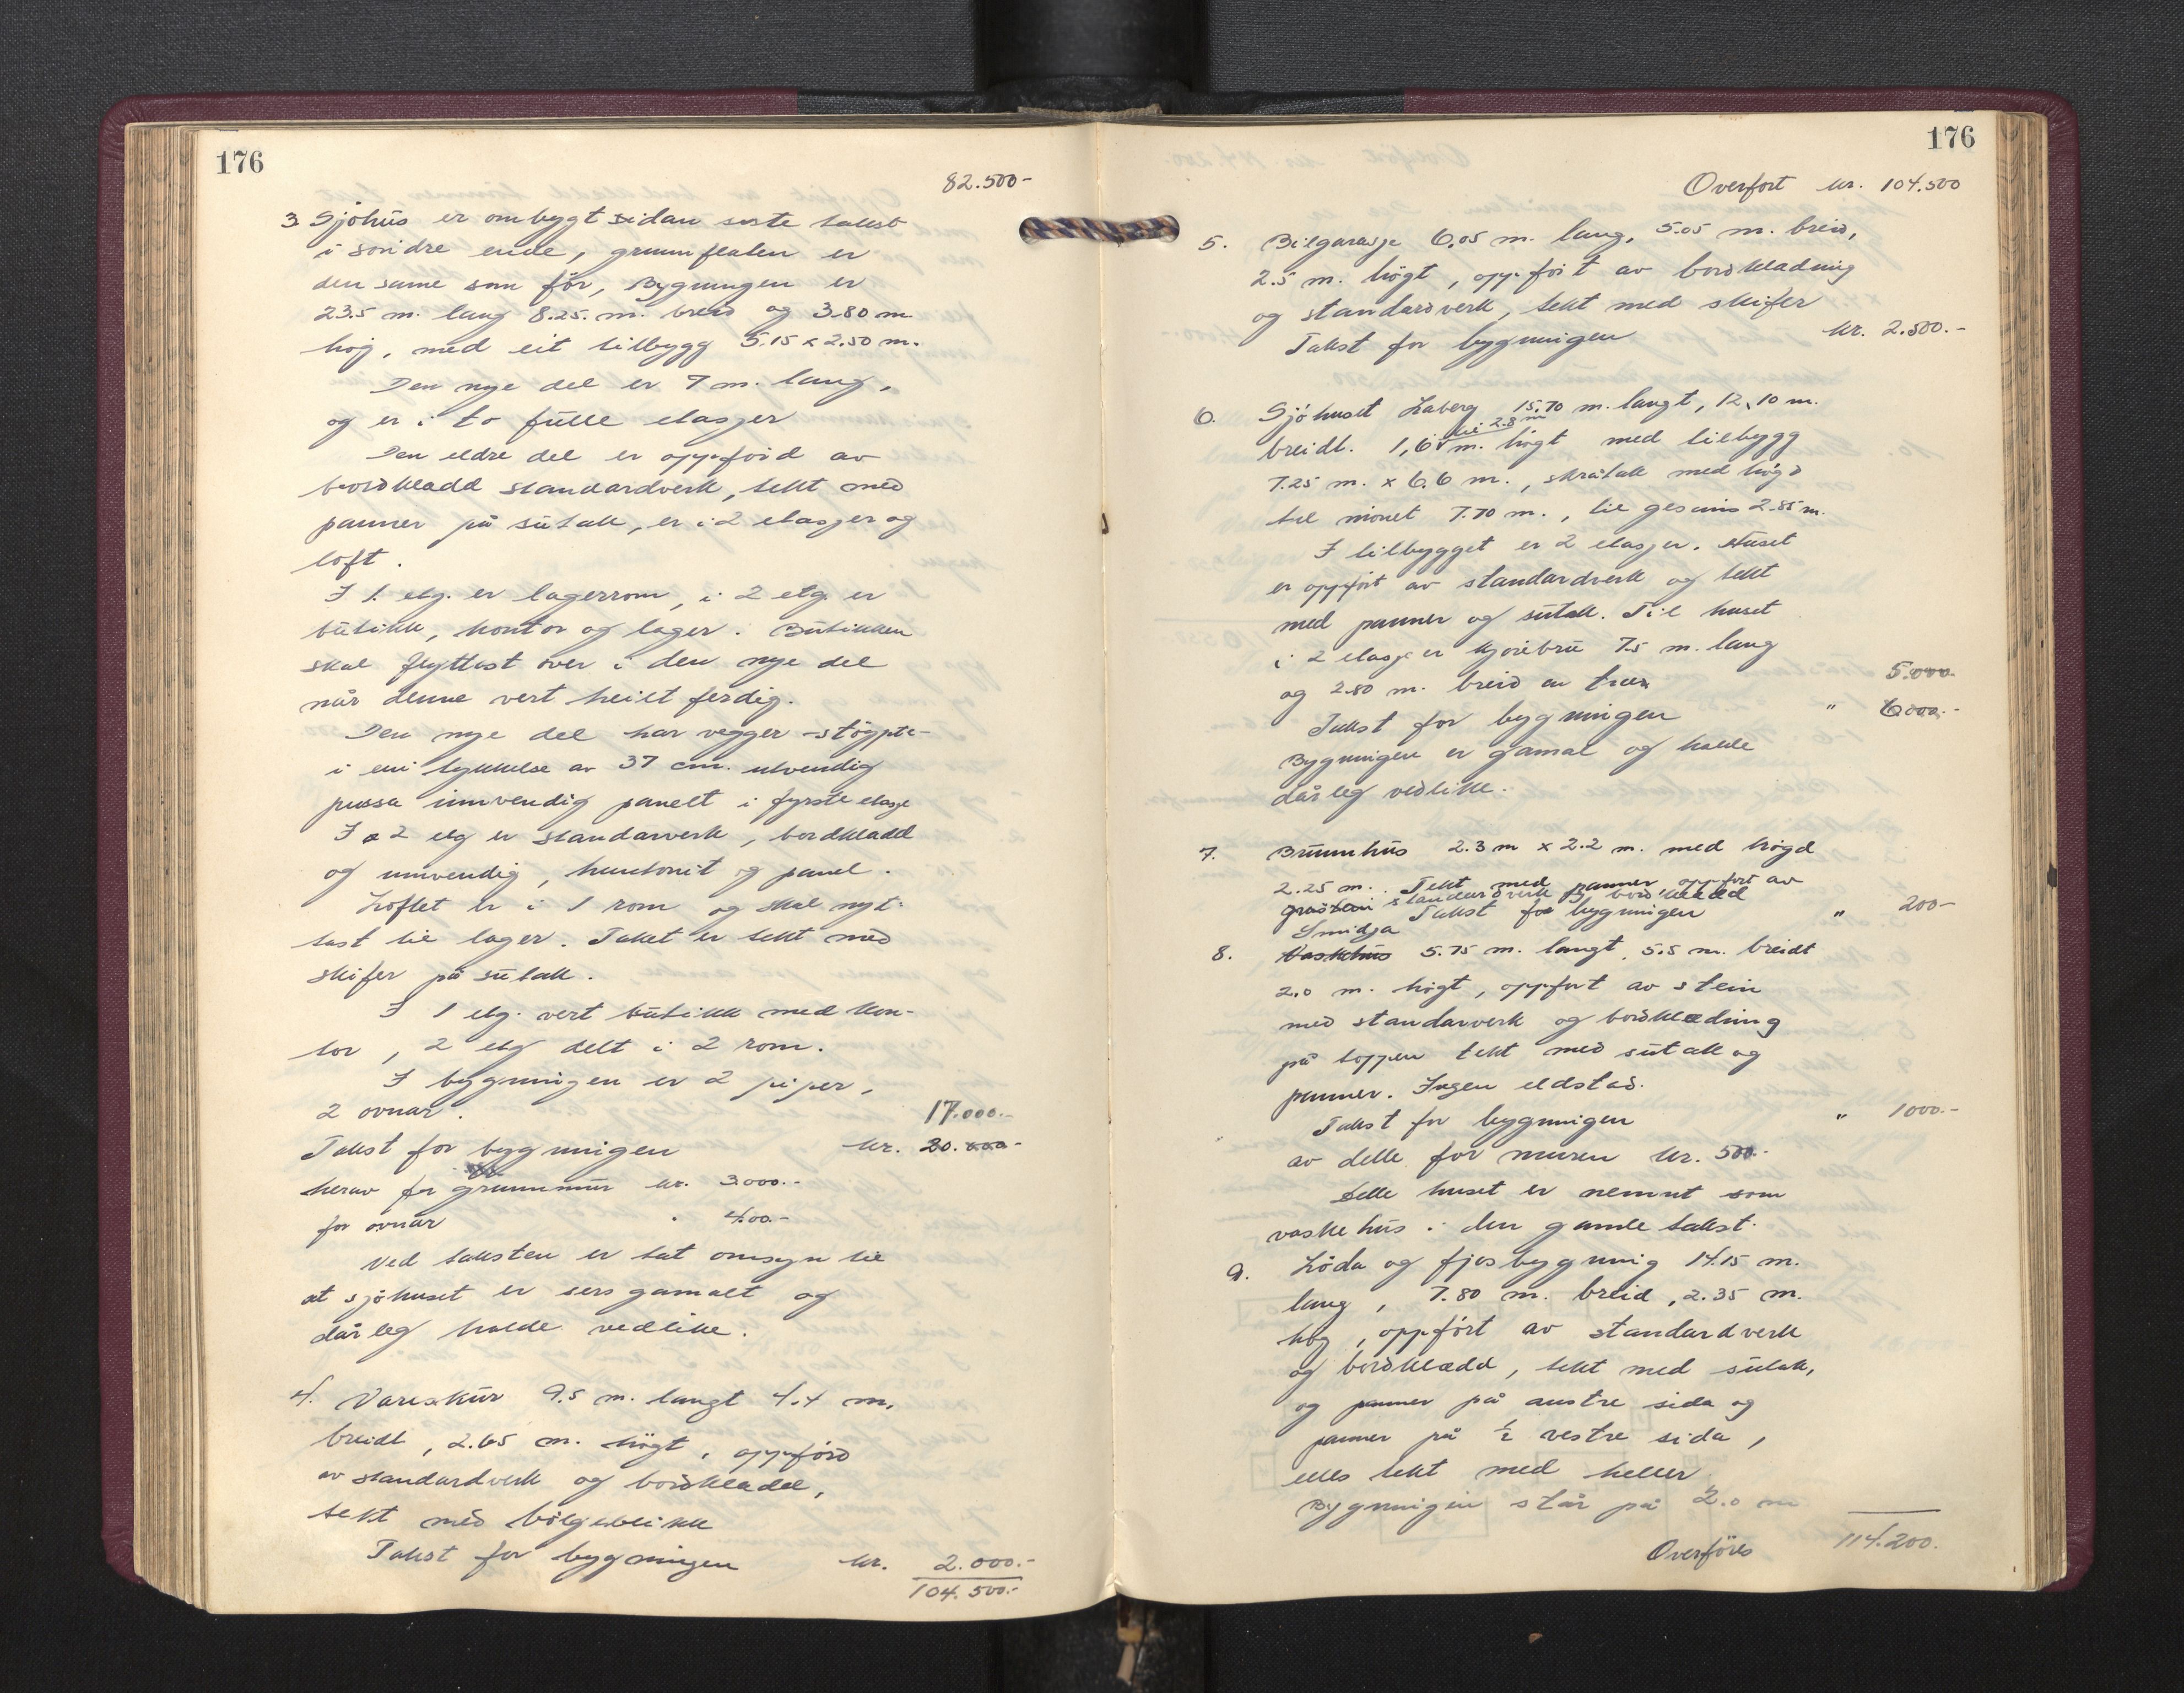 176
82.500-
3 Sjøhus er ombygt sidan siste takst
i søndre ende, grunnflaten er
den same som før, Bygningen er
23.5 m. lang 8.25. m. breid og 3.80 m
høj, med eit tilbygg 5.15 x 2.50 m.
Den nye del er 7 m. lang,
og er i to fulle etasjer
Den eldre del er oppførd av
bordkledd standardverk, tekt med
panner på sutak, er i 2 etasjer og
loft.
I 1. etg. er lagerrom, i 2 etg. er
butikk, kontor og lager. Butikken
skal flyttast over i den nye del
når denne vert heilt ferdig.
Den nye del har vegger -støypte-
i ein tykkelse av 37 cm. utvendig
pussa innvendig panelt i fyrste etasje
I 2 etg er standarverk, bordkledd
og innvendig, huntonit og panel.
Loftet er i 1 rom og skal nyt-
tast til lager. Taket er tekt med
skifer på sutak.
I 1 etg. vert butikk med kon-
tor, 2 etg delt i 2 rom.
I bygningen er 2 piper,
2 ovnar.
17.000.-
Takst for bygningen kr. 20.000-
herav for grunnmur kr. 3.000.-
for ovnar " 400.-
Ved taksten er tat omsyn til
at sjøhuset er sers gamalt og
dårleg halde vedlike.
4. Vareskur 9.5 m. langt 4.4 m.
breidt, 2.65 m. høgt, oppførd
av standardverk og bordkledd,
tekt med bølgeblikk
Takst for bygningen kr. 2.000.-
104.500.-
176
Overført kr. 104.500
5. Bilgarasje 6.05 m. lang, 5.05 m. breid,
2.5 m. høgt, oppført av bordkledning
og standardverk, tekt med skifer
Takst for bygningen kr. 2.500.-
6. Sjøhuset Laberg 15.70 m. langt, 12.10 m.
til 2.8 m
breidt. 1,6 m. høgt med tilbygg
7.25 m. x 6.6 m., skråtak med høgd
til mønet 7.70 m., til gesims 2.85 m.
I tilbygget er 2 etasjer. Huset
er oppført av standardverk og tekt
med panner og sutak. Til huset
i 2 etasje er kjørebru 7.5 m. lang
og 2.80 m. breid av tre
5.000-
Takst for bygningen " 6.000.-
Bygningen er gamal og halde
dårleg vedlike.
7. Brunnhus 2.3 m x 2.2 m. med høgd
2.25 m. Tekt med panner oppført av
gråstein standardverk og bordkledd
Takst for bygningen " 200-
Smidja
8. Vaskehus 5.75 m. langt, 5.5 m. breidt
2.0 m. høgt, oppført av stein
med standarverk og bordkledning
på toppen tekt med sutak og
panner. Ingen eldstad.
Takst for bygningen " 1000.-
av dette for muren kr. 500.-
Dette huset er nemnt som
vaskehus i den gamle takst.
9. Løda og fjøsbygning 14.15 m.
lang, 7.80 m. breid, 2.35 m.
høg, oppført av standardverk
og bordkledd, tekt med sutak,
og panner på austre sida og
panner på ½ vestre sida,
elles tekt med heller
Bygningen står på 2.0 m
Overføres 114.200.